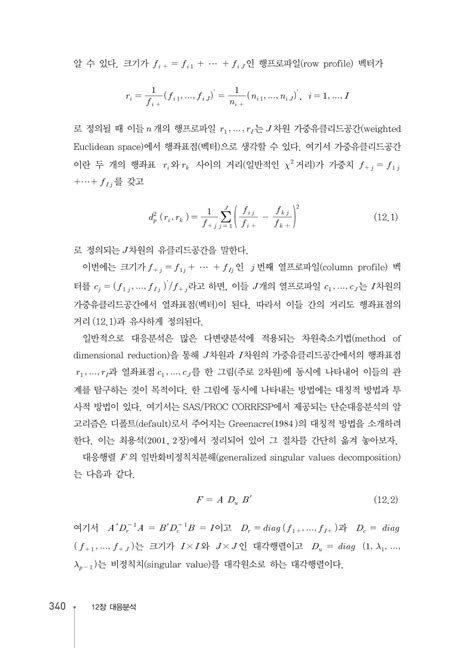 알 수 있다. 크기가 f_{i+} = f_{i1} + ⋯ + f_{iJ}인 행프로파일(row profile) 벡터가
r_i = \frac{1}{f_{i+}}(f_{i1}, ..., f_{iJ})' = \frac{1}{n_{i+}}(n_{i1}, ..., n_{iJ})', i = 1, ..., I
로 정의될 때 이들 n개의 행프로파일 r_1, ..., r_I는 J차원 가중유클리드공간(weighted
Euclidean space)에서 행좌표점(벡터)으로 생각할 수 있다. 여기서 가중유클리드공간
이란 두 개의 행좌표 r_i와 r_k 사이의 거리(일반적인 χ^2거리)가 가중치 f_{+j} = f_{1j}
+⋯+ f_{Ij}를 갖고
d_p^2(r_i, r_k) = \frac{1}{f_{+j}} \sum_{j=1}^{J} \left( \frac{f_{ij}}{f_{i+}} - \frac{f_{kj}}{f_{k+}} \right)^2 (12.1)
로 정의되는 J차원의 유클리드공간을 말한다.
이번에는 크기가 f_{+j} = f_{1j} + ⋯ + f_{Ij}인 j번째 열프로파일(column profile) 벡
터를 c_j = (f_{1j}, ..., f_{Ij})'/f_{+j}라고 하면, 이들 J개의 열프로파일 c_1, ..., c_J는 I차원의
가중유클리드공간에서 열좌표점(벡터)이 된다. 따라서 이들 간의 거리도 행좌표점의
거리 (12.1)과 유사하게 정의된다.
일반적으로 대응분석은 많은 다변량분석에 적용되는 차원축소기법(method of
dimensional reduction)을 통해 J차원과 I차원의 가중유클리드공간에서의 행좌표점
r_1, ..., r_I과 열좌표점 c_1, ..., c_J를 한 그림(주로 2차원)에 동시에 나타내어 이들의 관
계를 탐구하는 것이 목적이다. 한 그림에 동시에 나타내는 방법에는 대칭적 방법과 투
사적 방법이 있다. 여기서는 SAS/PROC CORRESP에서 제공되는 단순대응분석의 알
고리즘은 디폴트(default)로서 주어지는 Greenacre(1984)의 대칭적 방법을 소개하려
한다. 이는 최용석(2001, 2장)에서 정리되어 있어 그 절차를 간단히 옮겨 놓아보자.
대응행렬 F의 일반화비정칙치분해(generalized singular values decomposition)
는 다음과 같다.
F = A D_u B' (12.2)
여기서 A'D_r^{-1}A = B'D_c^{-1}B = I이고 D_r = diag(f_{1+}, ..., f_{I+})과 D_c = diag
(f_{+1}, ..., f_{+J})는 크기가 I×I와 J×J인 대각행렬이고 D_u = diag (1, λ_1, ...,
λ_{p-1})는 비정칙치(singular value)를 대각원소로 하는 대각행렬이다.
340 12장 대응분석